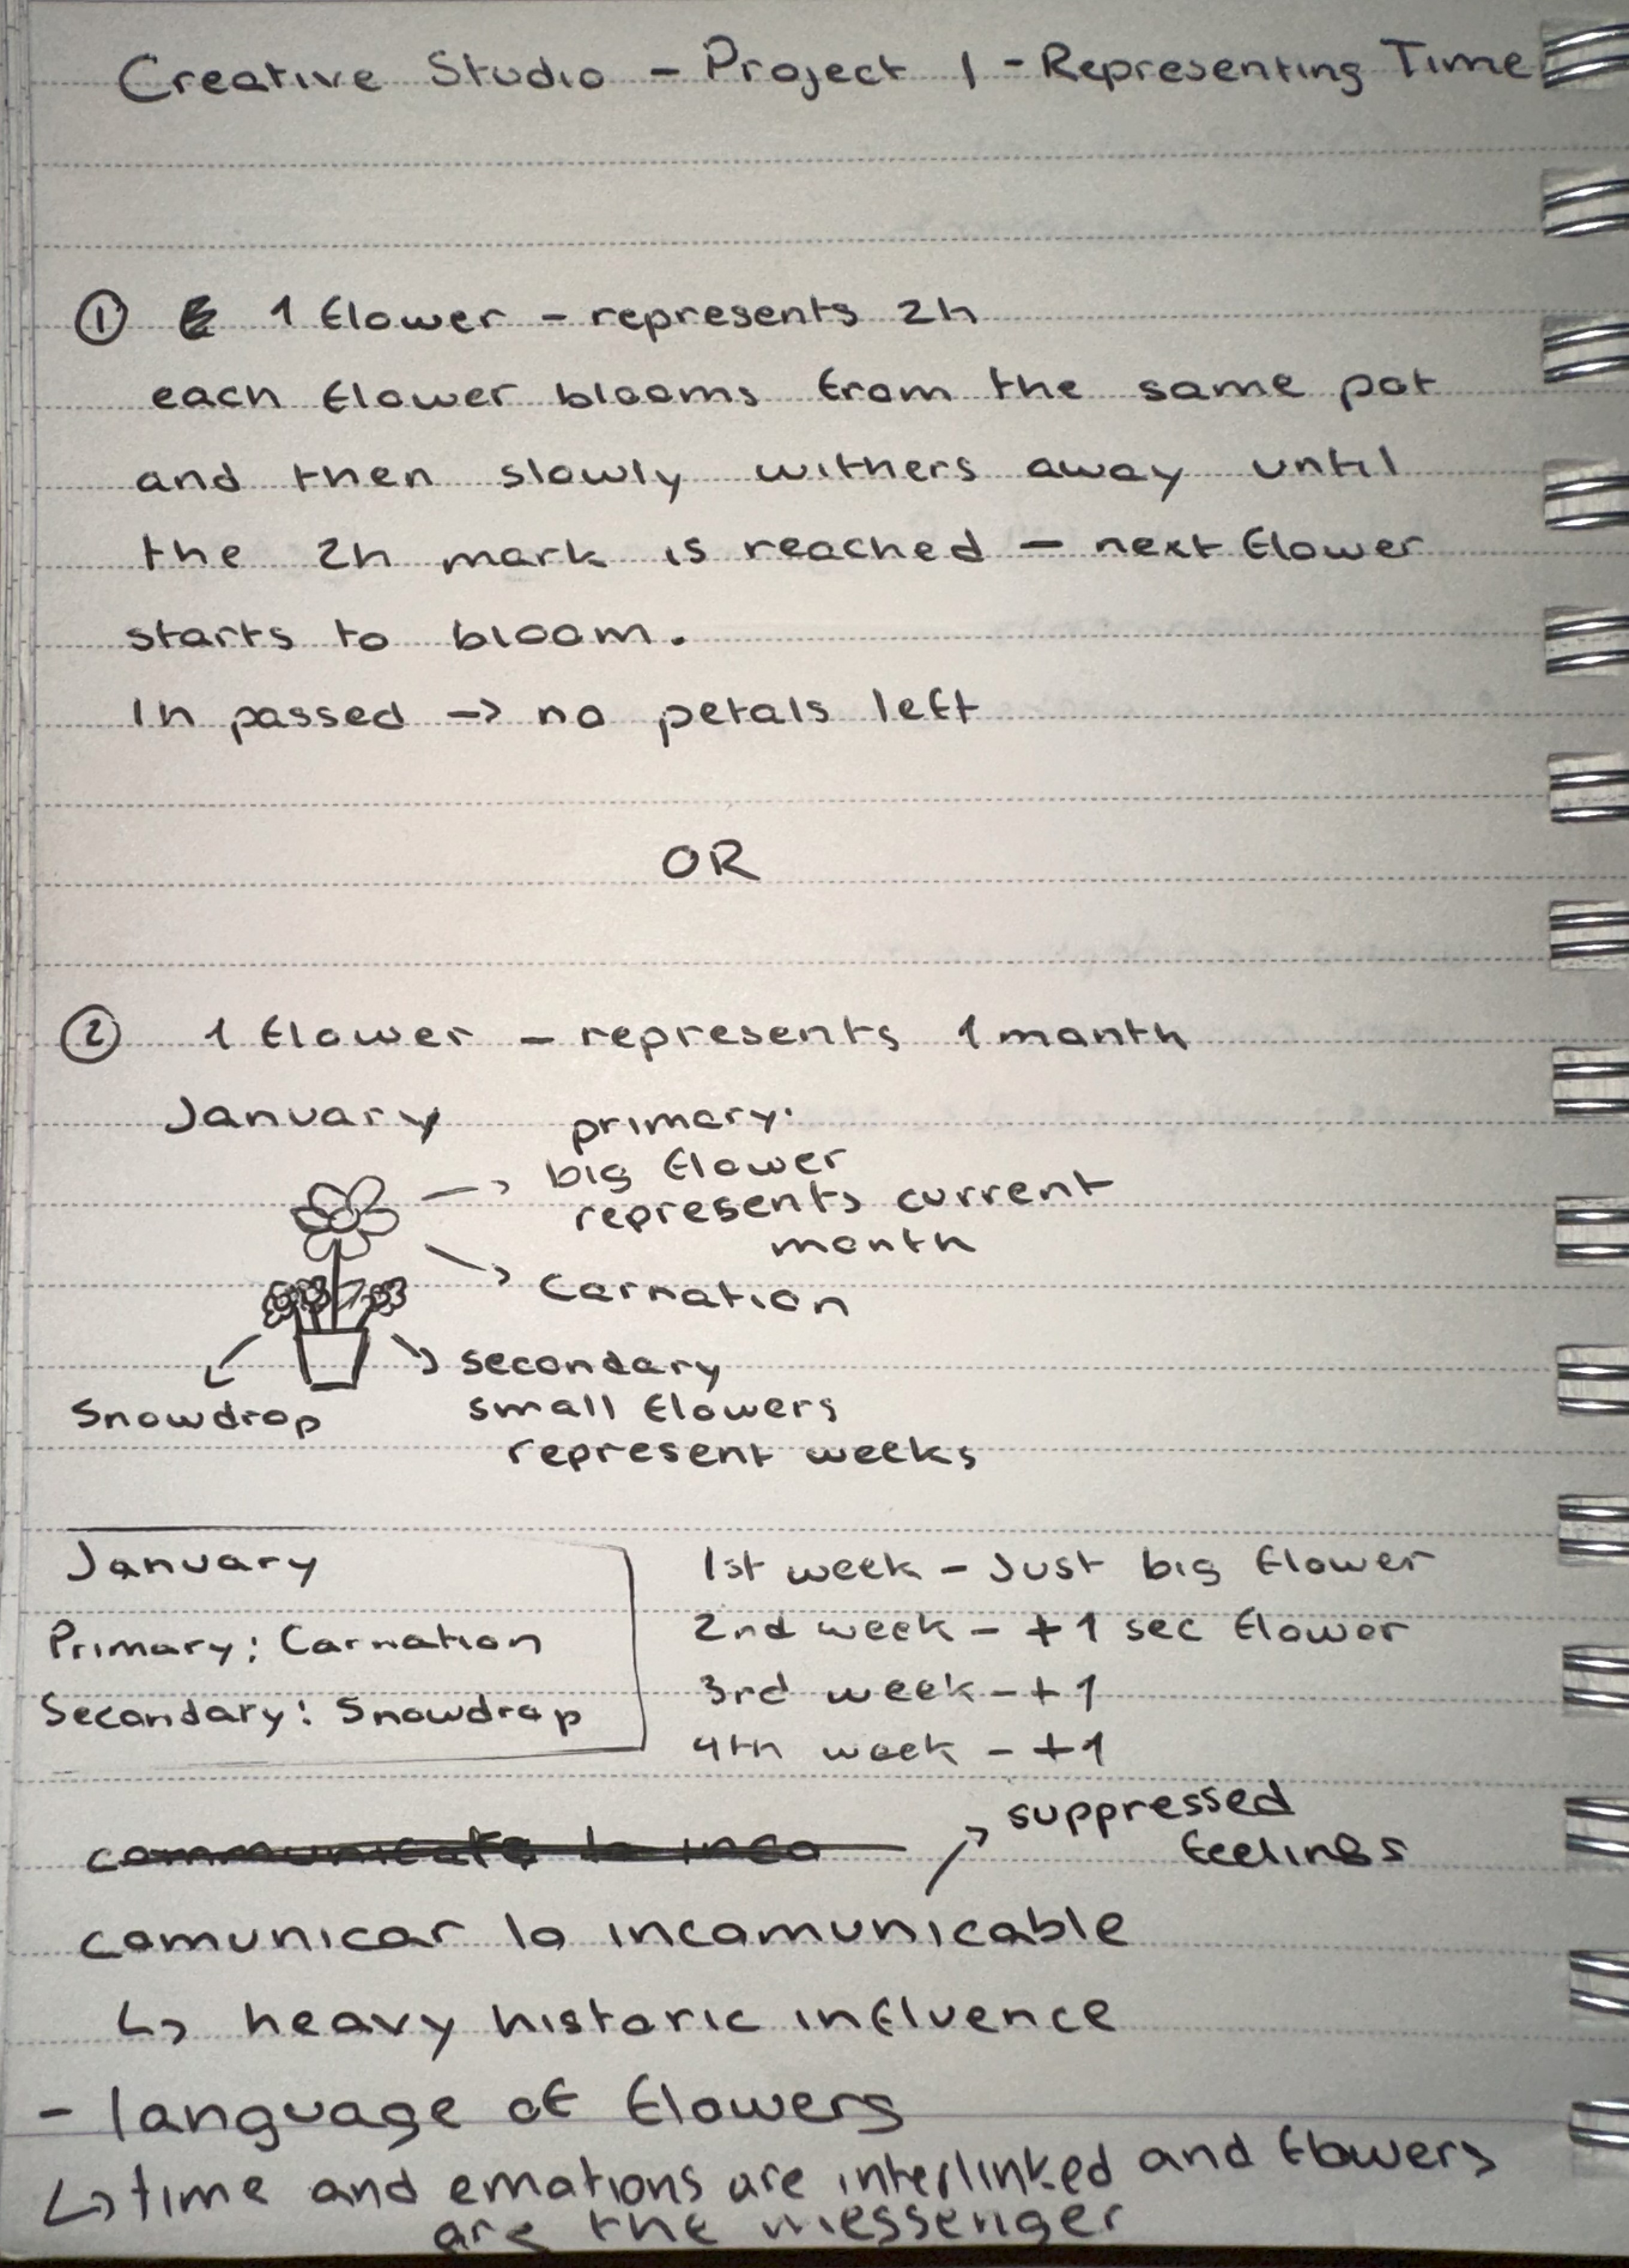 Creative Studio - Project 1 - Representing Time
① 1 flower - represents 2h
each flower blooms from the same pot
and then slowly withers away until
the 2h mark is reached - next flower
starts to bloom.
1h passed -> no petals left
OR
② 1 flower - represents 1 month
January
primary:
big flower
represents current
month
Carnation
secondary
small flowers
represent weeks
Snowdrop
January
Primary: Carnation
Secondary: Snowdrop
1st week - Just big flower
2nd week - +1 sec flower
3rd week - +1
4th week - +1
suppressed
feelings
comunicar lo incomunicable
↳ heavy historic influence
- language of flowers
↳ time and emotions are interlinked and flowers
are the messenger